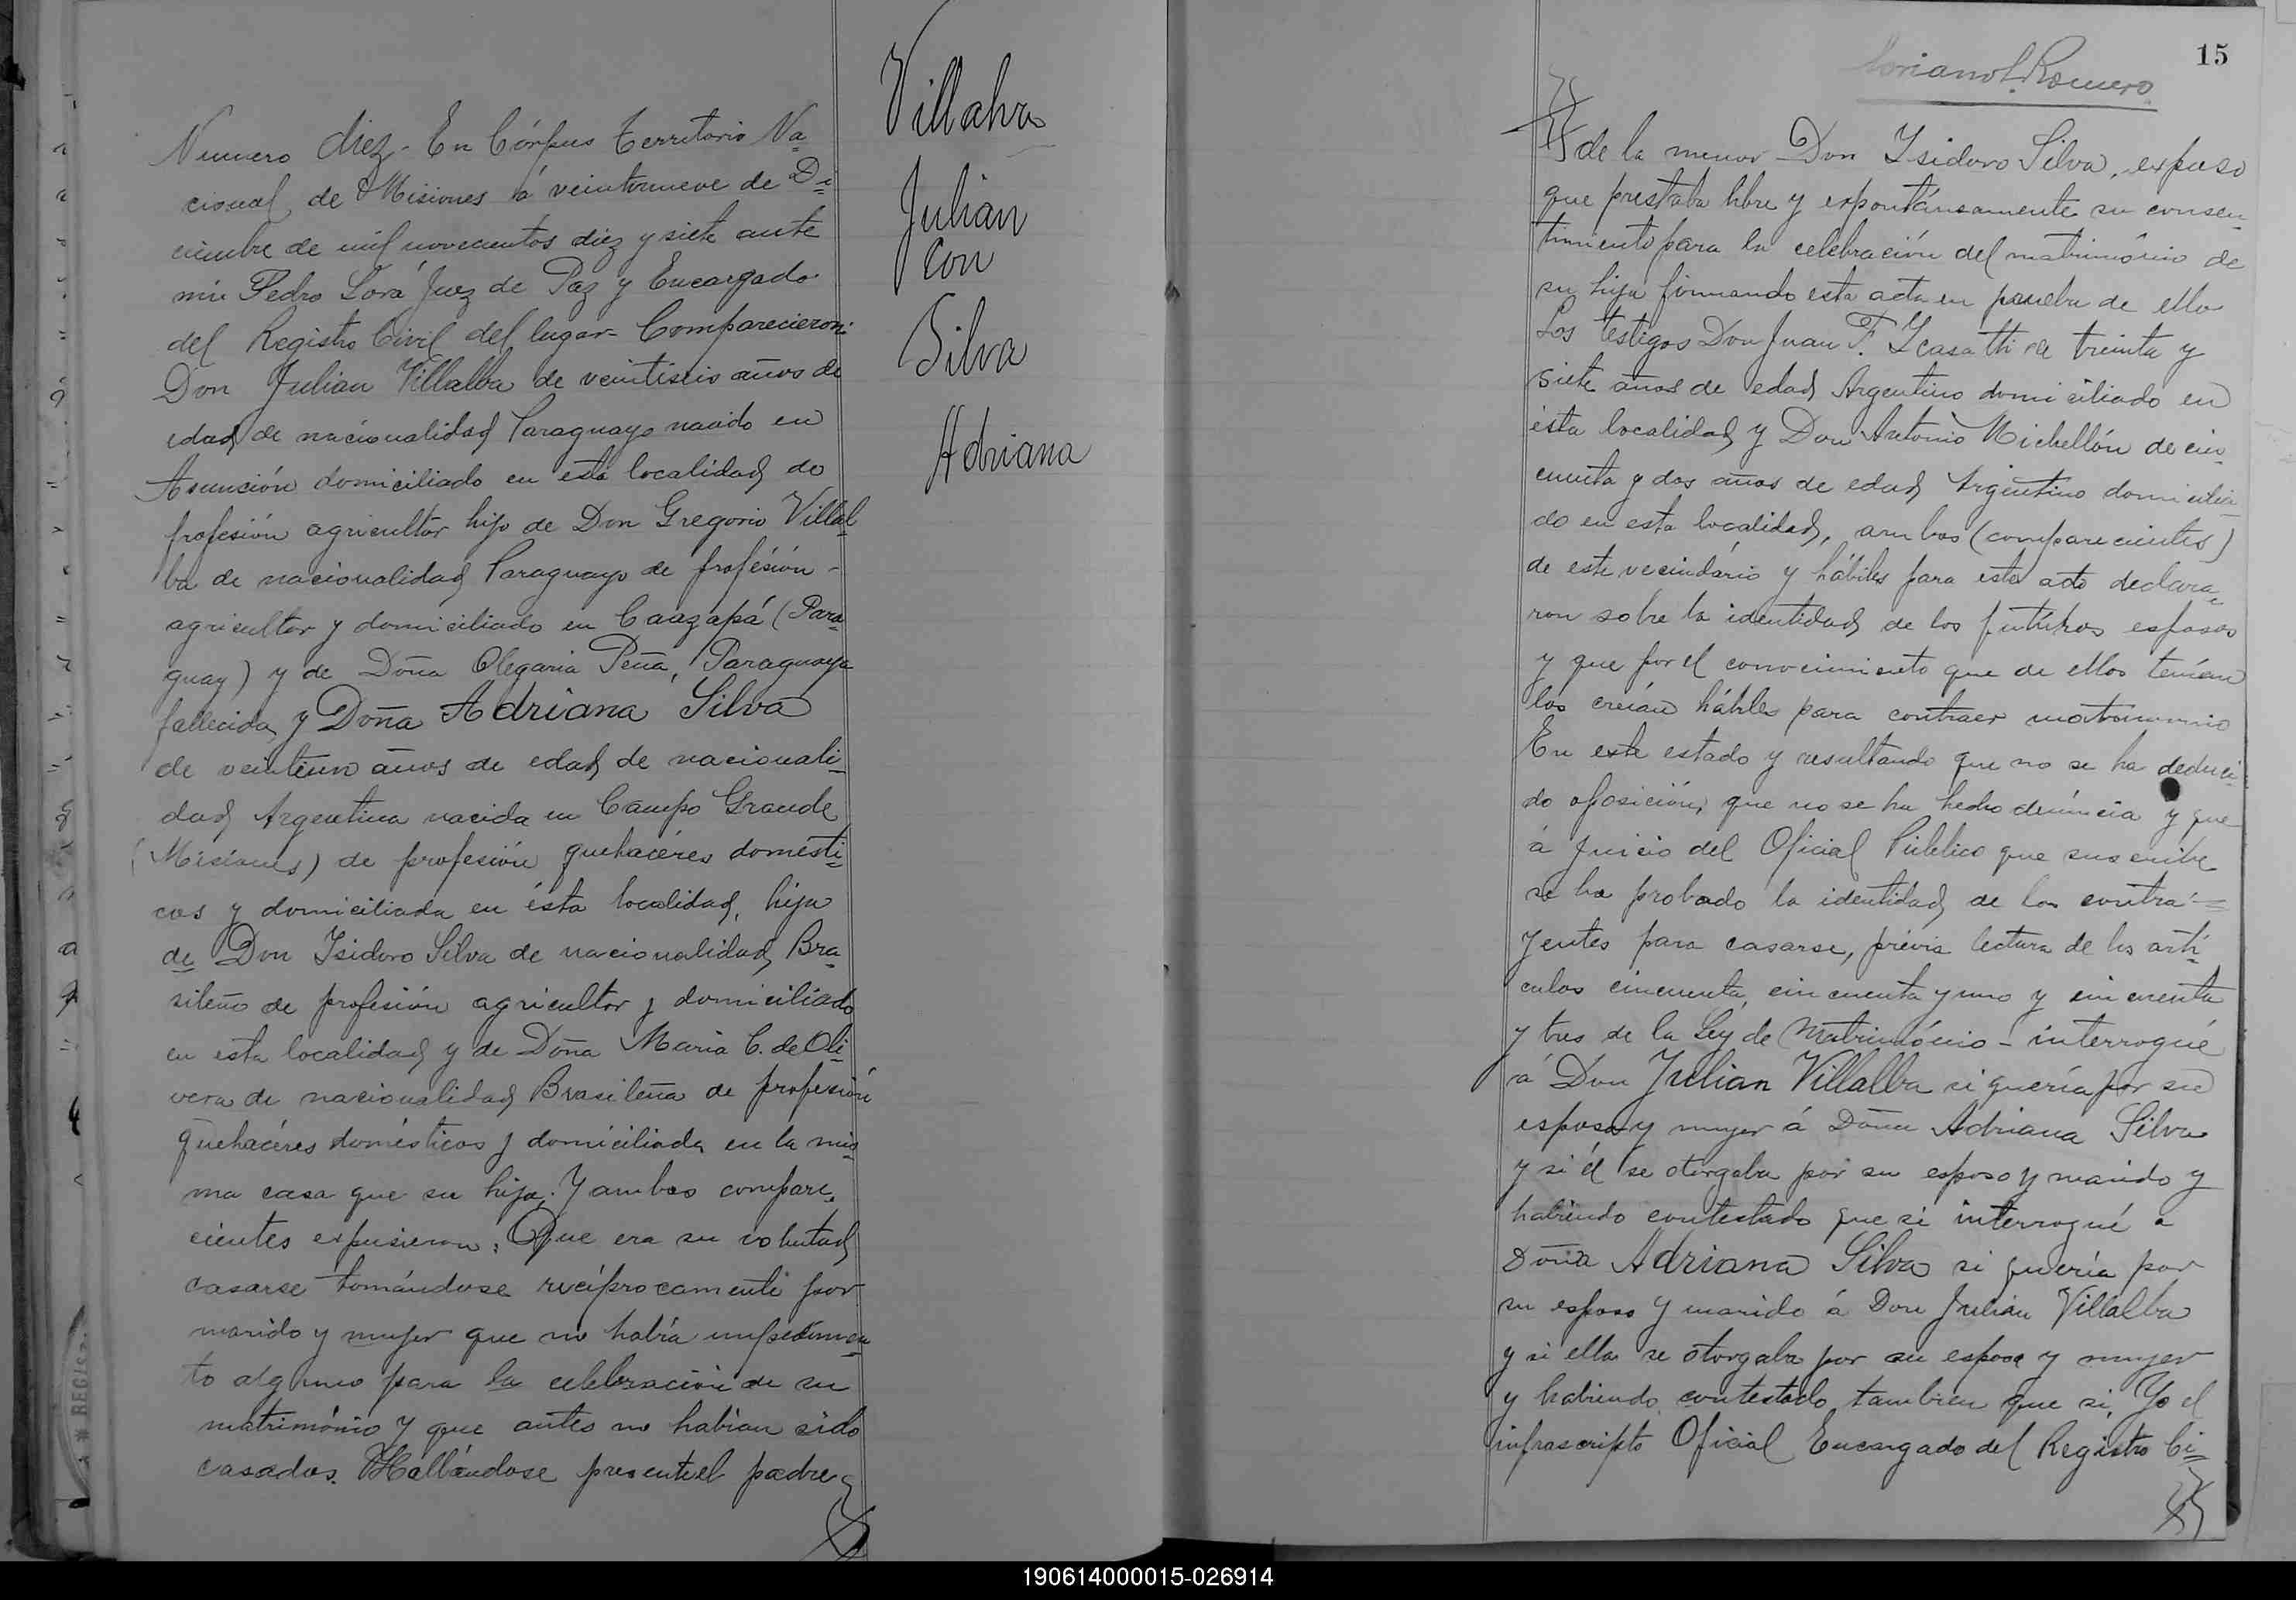 Numero diez. En Córpus Territorio Na-
cional de Misiones á veintinueve de Di-
ciembre de mil novecientos diez y siete ante
mi Pedro Lora Juez de Paz y Encargado
del Registro Civil del lugar- Comparecieron:
Don Julian Villalba de veintiseis años de
edad de nacionalidad Paraguayo nacido en
Asunción domiciliado en esta localidad de
profesión agricultor hijo de Don Gregorio Villal-
ba de nacionalidad Paraguayo de profésión -
agricultor y domiciliado en Caazapá (Para-
guay) y de Doña Olegaria Peña, Paraguaya
fallecida y Doña Adriana Silva
de veintiun años de edad de nacionali-
dad Argentina nacida en Campo Grande
(Misiones) de profesión quehacéres domésti-
cos y domiciliada en ésta localidad, hija
de Don Isidoro Silva de nacionalidad Bra-
sileño de profesión agricultor y domiciliado
en esta localidad y de Doña Maria C. de Oli-
vera de nacionalidad Brasileña de profesión
quehacéres domésticos y domiciliada en la mis-
ma casa que su hija. Y ambos compare-
cientes expusieron: Que era su volutad
casarse tomándose recíprocamente por
marido y mujer que no había impedimen-
to alguno para la celebración de su
matrimónio y que antes no habían sido
casados. Hallándose presente el padre
Villalva
Julian
con
Silva
Adriana
15
Romero
de la menor Don Ysidoro Silva, expuso
que prestaba libre y expontáneamente su consen-
timiento para la celebración del matrimónio de
su hija firmando esta acta en prueba de ello
Los testigos Don Juan F. de treinta y
siete años de edad Argentino domiciliado en
ésta localidad y Don Antonio Michellón de cin-
cuenta y dos años de edad Argentino domicilia-
do en esta localidad, ambos (comparecientes)
de este vecindário y hábiles para este acto declara-
ron sobre la identidad de los futuros esposos
y que por el conocimiento que de ellos tenían
los creían hábiles para contraer matrimonio
En este estado y resultando que no se ha deduci-
do oposición, que no se ha hecho denúncia y que
á juicio del Oficial Público que suscribe
se ha probado la identidad de los contra-
yentes para casarse, prévia lectura de los artí-
culos cincuenta, cincuenta y uno y cincuenta
y tres de la Ley de Matrimónio - interrogué
á Don Julian Villalba si quería por su
esposa y mujer á Doña Adriana Silva
y si él se otorgaba por su esposo y marido y
habiendo contestado que si interrogué a
Doña Adriana Silva si quería por
su esposo y marido á Don Julián Villalba
y si ella se otorgaba por su esposa y mujer
y habiendo contestado tambien que si. Yo el
infrascripto Oficial Encargado del Registro Ci-
REGIS
190614000015-026914